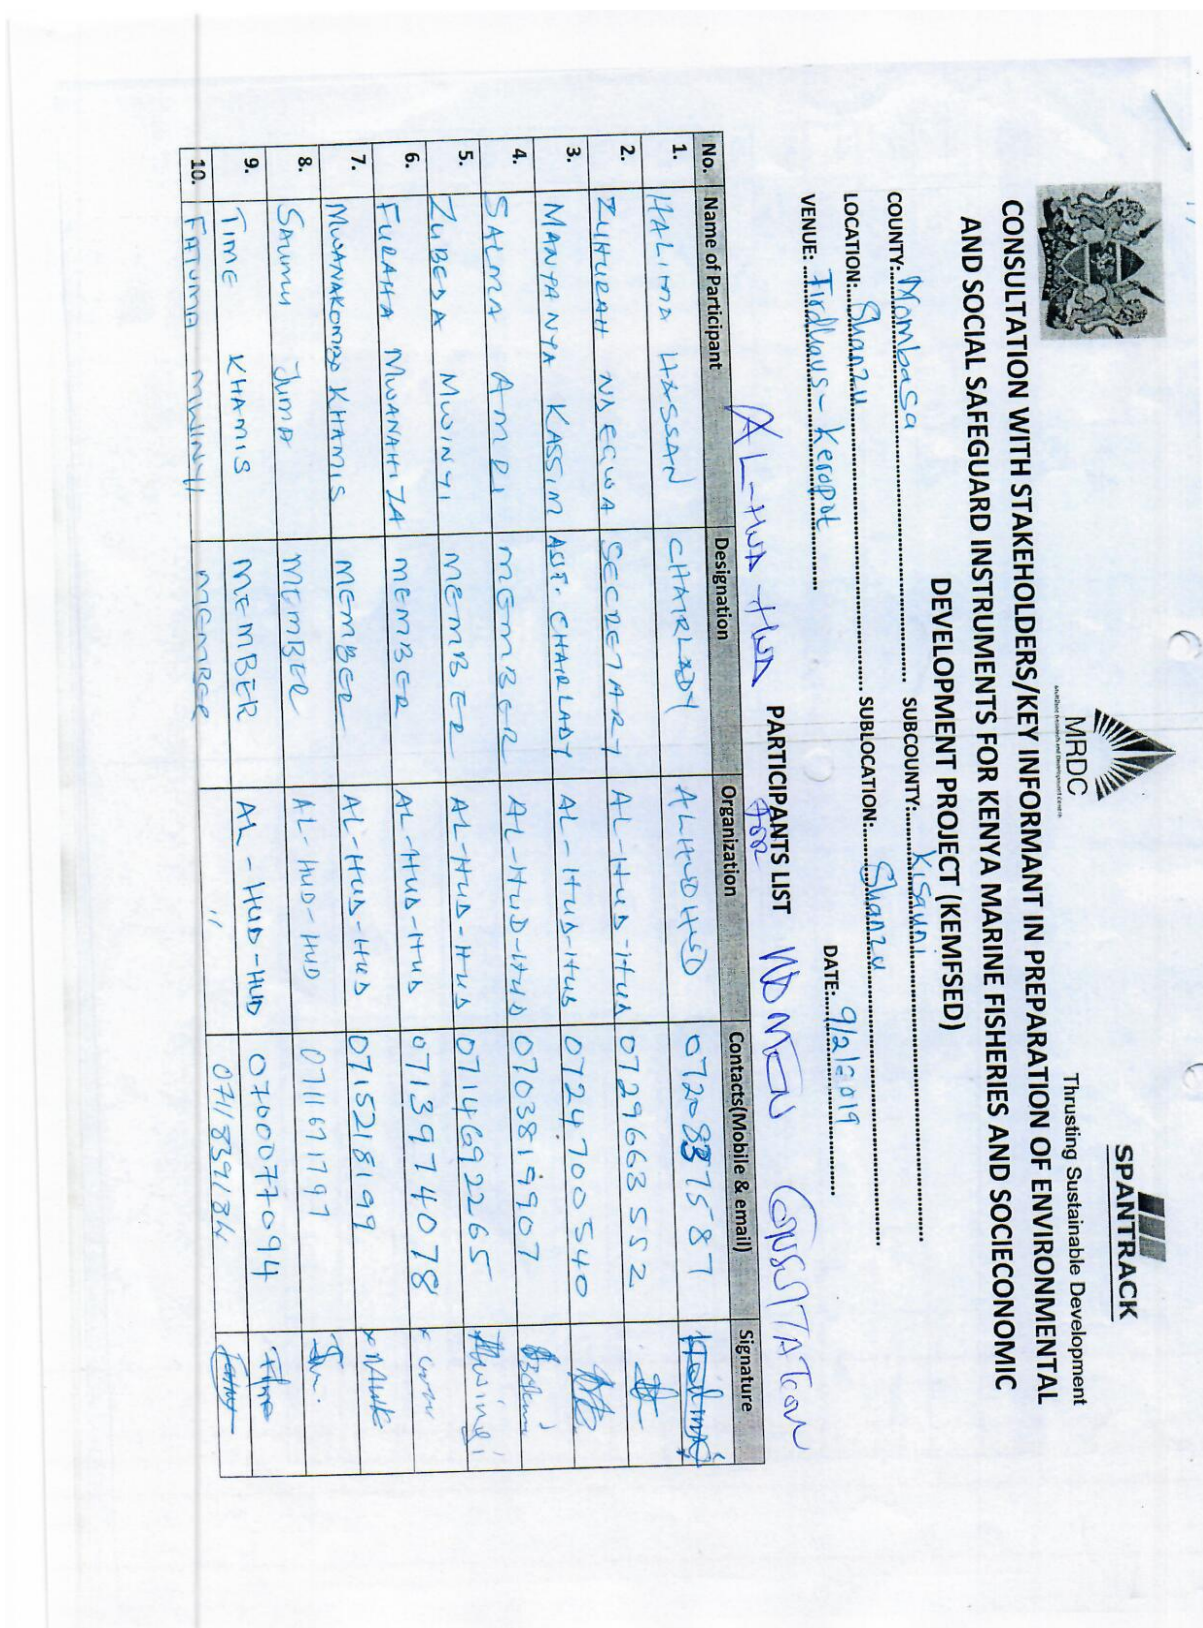 MRDC
SPANTRACK
Thrusting Sustainable Development
CONSULTATION WITH STAKEHOLDERS/KEY INFORMANT IN PREPARATION OF ENVIRONMENTAL
AND SOCIAL SAFEGUARD INSTRUMENTS FOR KENYA MARINE FISHERIES AND SOCIECONOMIC
DEVELOPMENT PROJECT (KEMFSED)
COUNTY: Mombasa SUBCOUNTY: Kisauni
LOCATION: Shanzu SUBLOCATION: Shanzu
VENUE: Firdhaus - Keropot DATE: 9/2/2019
AL-HUD-HUD PARTICIPANTS LIST FOR WOMEN CONSULTATION
No. Name of Participant Designation Organization Contacts(Mobile & email) Signature
1. HALIMA HASSAN CHAIRLADY ALHUDHUD 0720875587
2. ZUHURAH NDEGWA SECRETARY AL-HUD-HUD 0729663552
3. MANYANYA KASSIM ASST. CHAIRLADY AL-HUD-HUD 0724700540
4. SALMA AMRI MEMBER AL-HUD-HUD 0703819907
5. ZUBEDA MWINYI MEMBER AL-HUD-HUD 0714692265 Mwinyi
6. FURAHA MWANAHIZA MEMBER AL-HUD-HUD 0713974078
7. MWANAKOMBO KHAMIS MEMBER AL-HUD-HUD 0715218199
8. SAUMU JUMA MEMBER AL-HUD-HUD 0711671797
9. TIME KHAMIS MEMBER AL-HUD-HUD 0700077094 Time
10. FATUMA MWINYI MEMBER " 0711839184